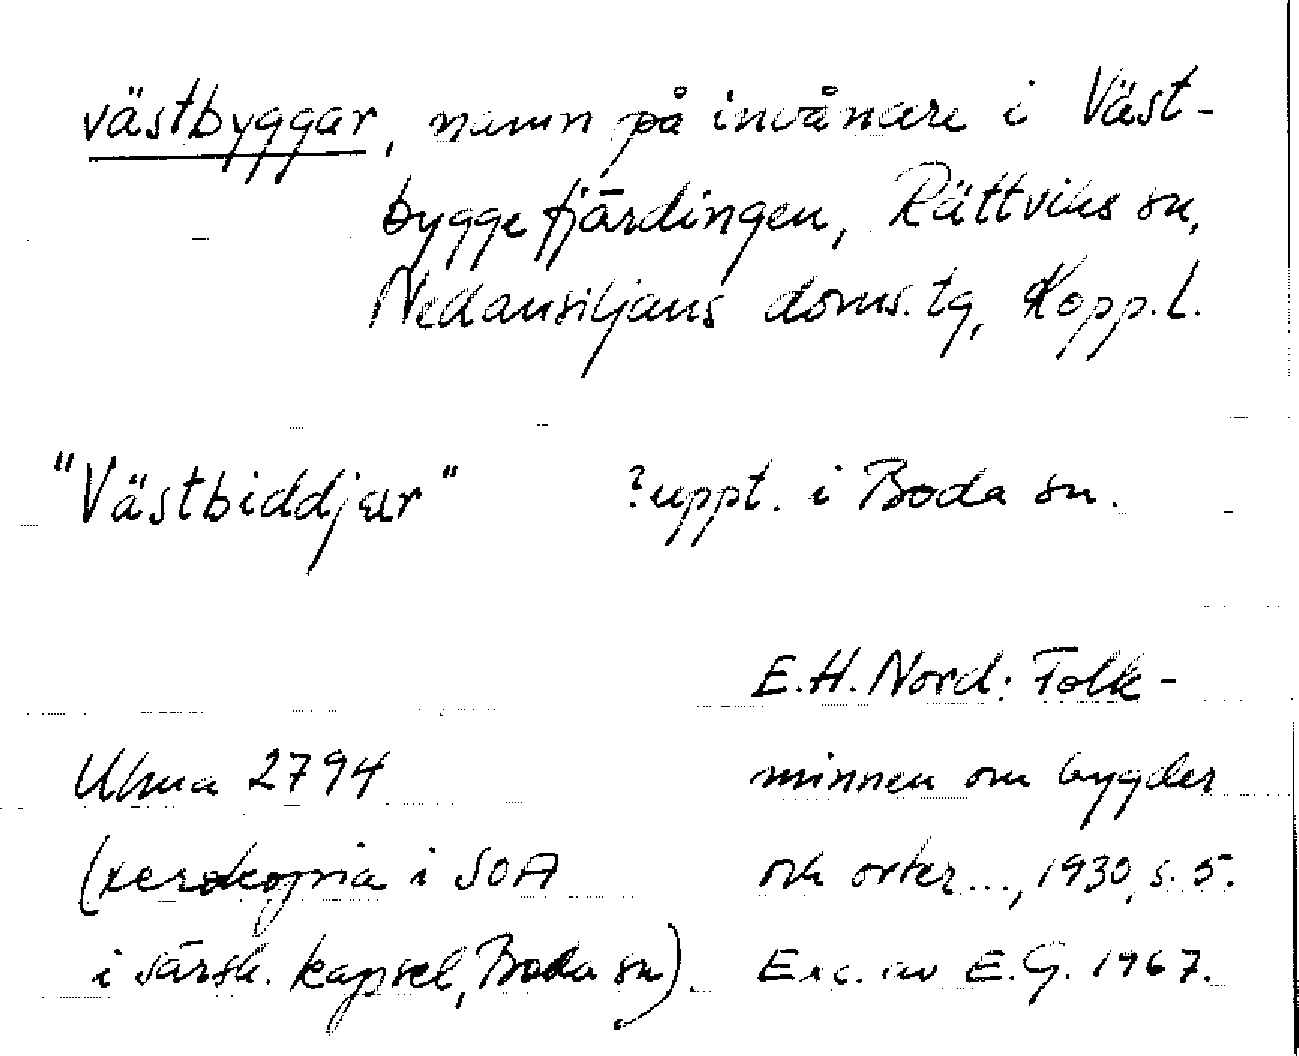 västbyggar, namn på invånare i Väst-
byggefjärdingen, Rättviks sn,
Nedansiljans doms. tg, Kopp. l.
"Västbiddjar" ? uppt. i Boda sn.
E.H. Nord: Folk-
minnen om bygder
och orter..., 1930, s. 5.
Exc. av E.G. 1967.
Ulma 2794
(xerokopia i SOA
i särsk. kapsel, Boda sn)